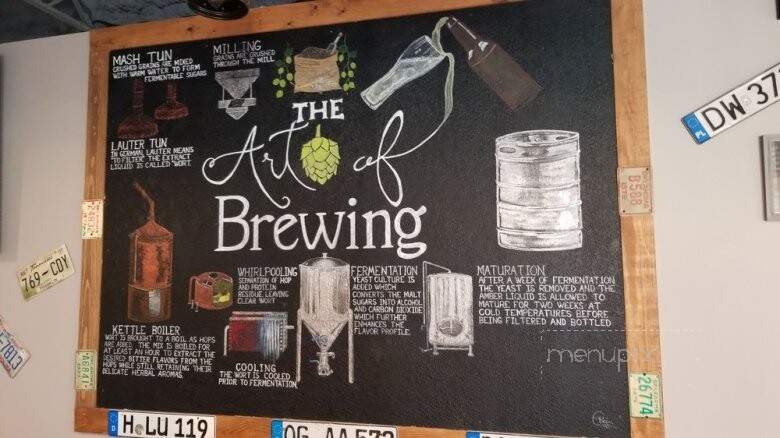 MASH TUN
CRUSHED GRAINS ARE MIXED
WITH WARM WATER TO FORM
FERMENTABLE SUGARS
MILLING
GRAINS ARE CRUSHED
THROUGH THE MILL
LAUTER TUN
IN GERMAN, LAUTER MEANS
"TO FILTER". THE EXTRACT
LIQUID IS CALLED "WORT."
THE
Art of
Brewing
KETTLE BOILER
WORT IS BROUGHT TO A BOIL AS HOPS
ARE ADDED. THE MIX IS BOILED FOR
AT LEAST AN HOUR TO EXTRACT THE
DESIRED BITTER FLAVORS FROM THE
HOPS WHILE STILL RETAINING THEIR
DELICATE HERBAL AROMAS.
WHIRLPOOLING
SEPARATION OF HOP
AND PROTEIN
RESIDUE, LEAVING
CLEAR WORT
COOLING
THE WORT IS COOLED
PRIOR TO FERMENTATION
FERMENTATION
YEAST CULTURE IS
ADDED WHICH
CONVERTS THE MALT
SUGARS INTO ALCOHOL
AND CARBON DIOXIDE
WHICH FURTHER
ENHANCES THE
FLAVOR PROFILE.
MATURATION
AFTER A WEEK OF FERMENTATION
THE YEAST IS REMOVED AND THE
AMBER LIQUID IS ALLOWED TO
MATURE FOR TWO WEEKS AT
COLD TEMPERATURES BEFORE
BEING FILTERED AND BOTTLED
menupix
PL
DW 37
B588
769 CDY
26774
D
H LU 119
OG AA 573